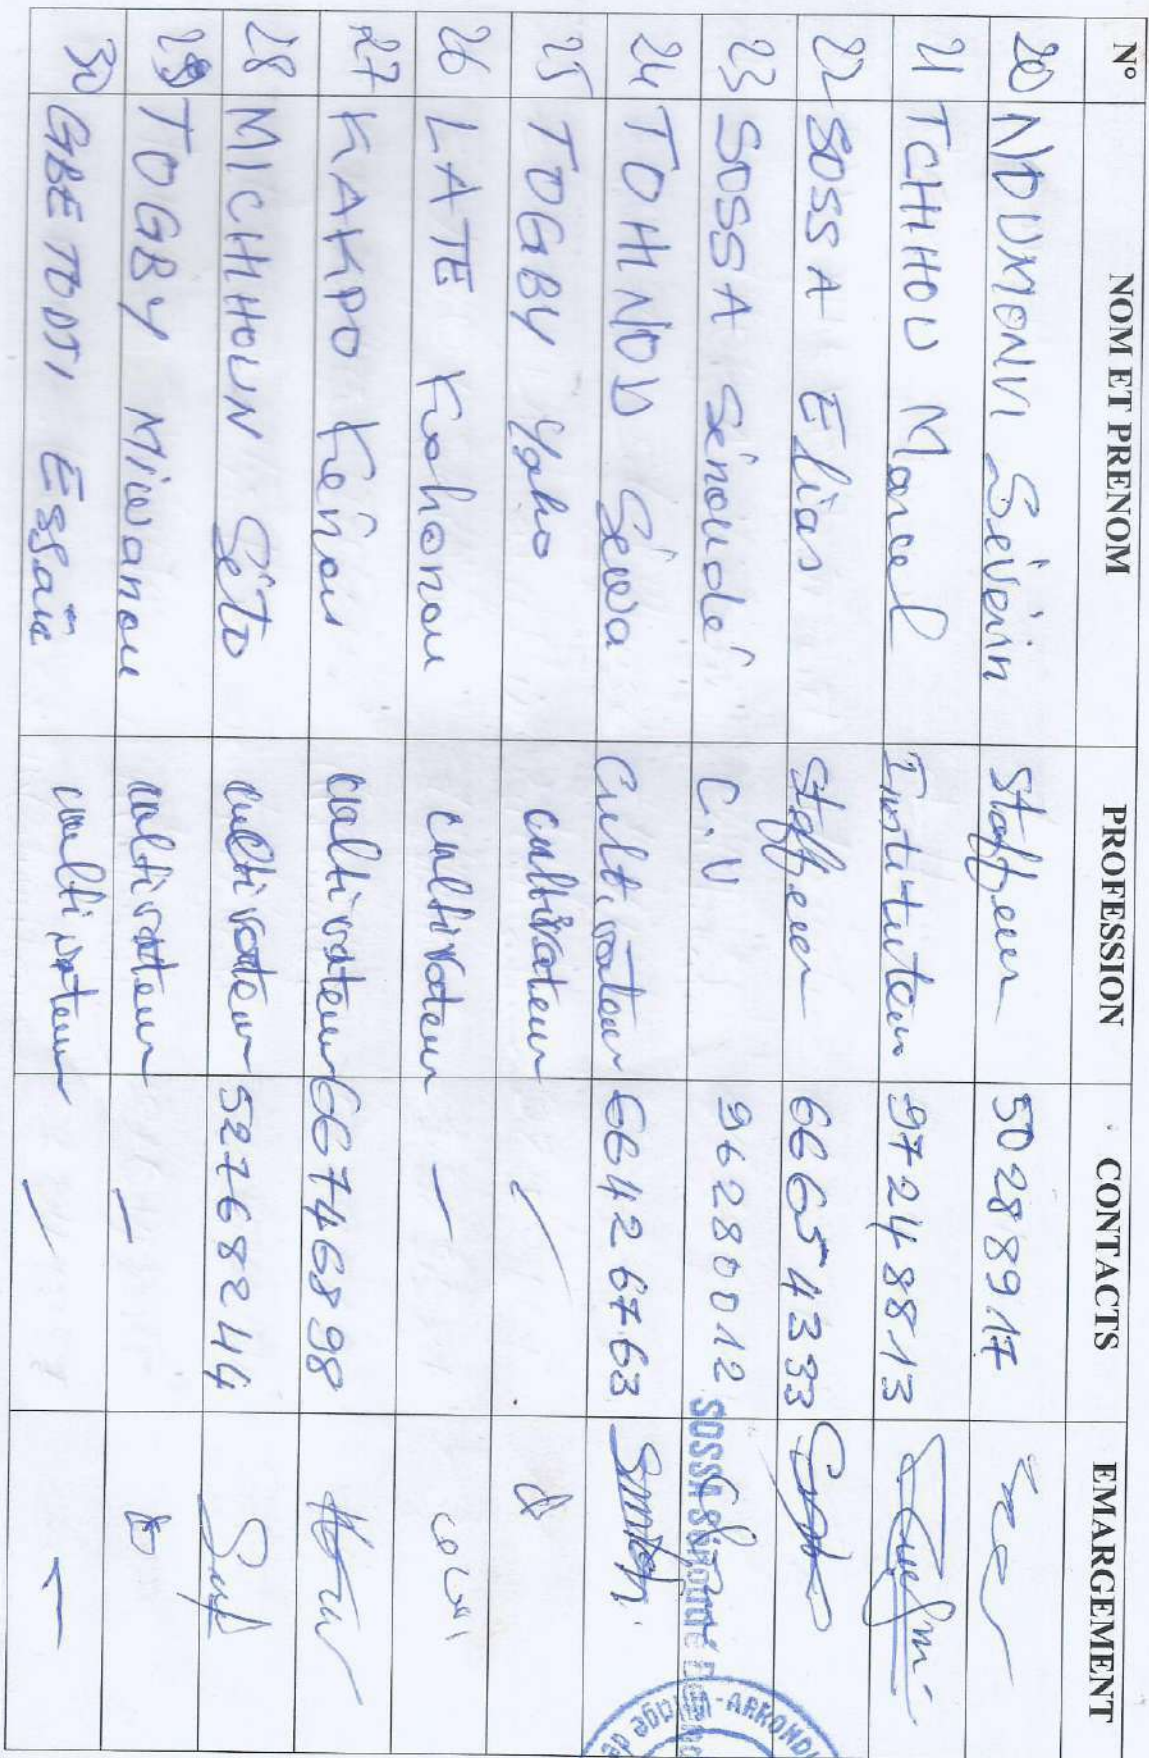 N° NOM ET PRENOM PROFESSION CONTACTS EMARGEMENT
20 Sévérin Staffeur 50288917
21 TCHIHOU Marcel Instituteur 97248813
22 SOSSA Elias Staffeur 66654333
23 SOSSA Sénoudé C.V 96280012 SOSSA
24 TOHNOD Séwa Cultivateur 66426763
25 TOGBY Yaho cultivateur /
26 LATE Kohonou cultivateur —
27 KAKPO Kénou cultivateur 66746898
28 MICHHOUN Séto cultivateur 52768244
29 TOGBY Miwanou cultivateur —
30 GBETODJI Essaïe cultivateur /
-ARRONDI